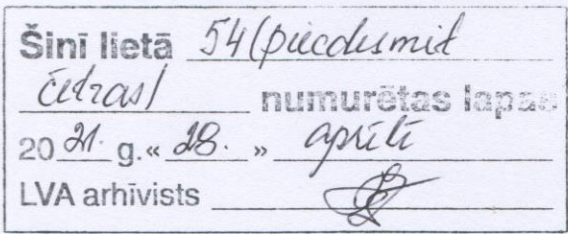 Šinī lietā 54 (piecdesmit
četras) numurētas lapas
2021. g. « 28. » aprīlī
LVA arhīvists